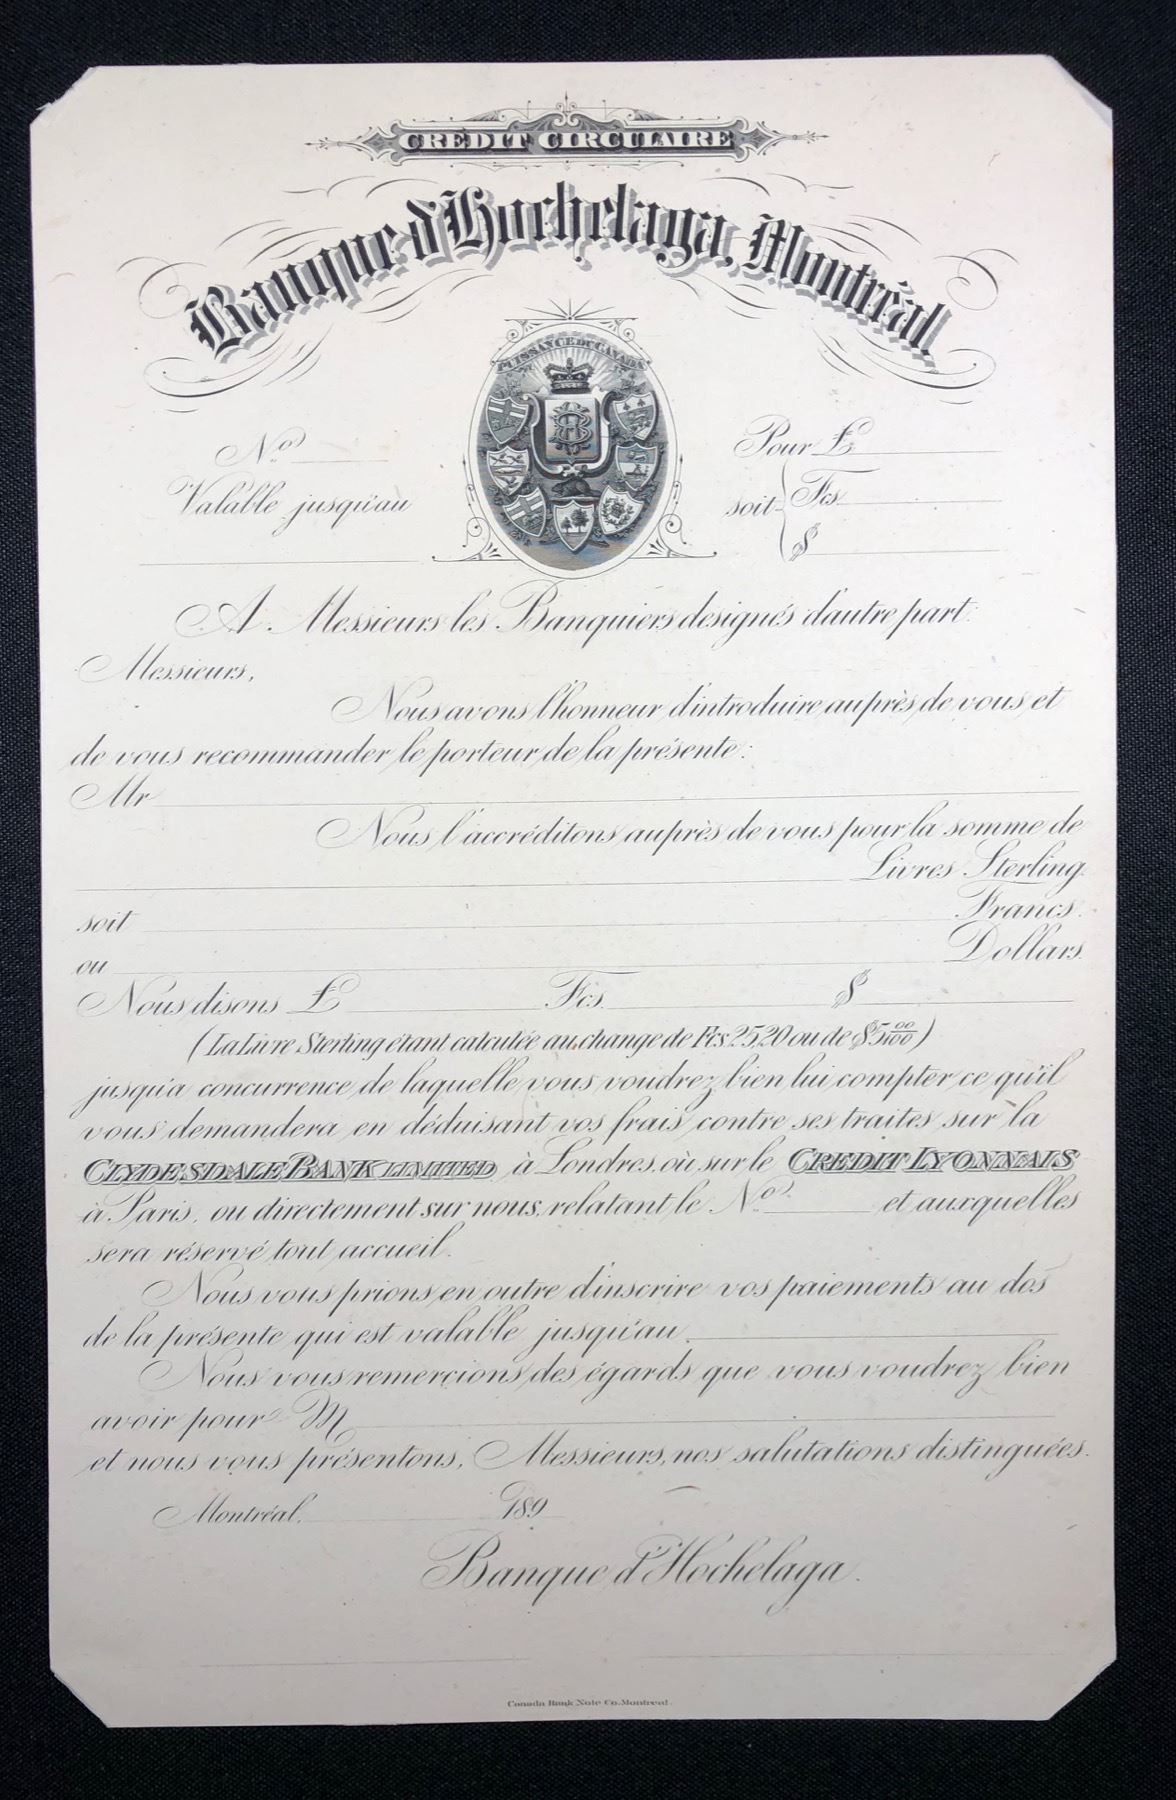 CREDIT CIRCULAIRE
Banque d'Hochelaga, Montréal.
PUISSANCE DU CANADA
No.
Valable jusqu'au
Pour £
soit Fcs.
$
A Messieurs les Banquiers designés d'autre part:
Messieurs,
Nous avons l'honneur d'introduire auprès de vous et
de vous recommander le porteur de la présente:
Mr
Nous l'accréditons auprès de vous pour la somme de
Livres Sterling.
soit Francs.
ou Dollars.
Nous disons £ Fcs. $
(La Livre Sterling étant calculée au change de Fcs. 25,20 ou de $5 00/100)
jusqu'a concurrence de laquelle vous voudrez bien lui compter ce qu'il
vous demandera en déduisant vos frais contre ses traites sur la
CLYDESDALE BANK LIMITED à Londres, où sur le CREDIT LYONNAIS
à Paris, ou directement sur nous, relatant le No. et auxquelles
sera réservé tout accueil.
Nous vous prions en outre d'inscrire vos paiements au dos
de la présente qui est valable jusqu'au
Nous vous remercions des égards que vous voudrez bien
avoir pour M
et nous vous présentons, Messieurs, nos salutations distinguées.
Montréal, 189
Banque d'Hochelaga.
Canada Bank Note Co. Montreal.